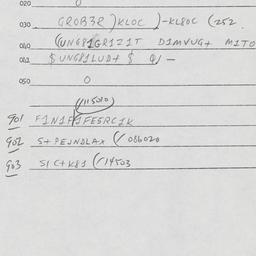 020
030 GROB3R )KLOC )-KL8OC (252
040 (UNG81GR1Z1T D1MVUG+ M1TO
041 $UNG81LUD+ $ 0/ -
050 0
(/115010)
901 F1N1F1FESRC1K
902 S+PEJNDLAX (/086020
903 S1C+K81 (/14503